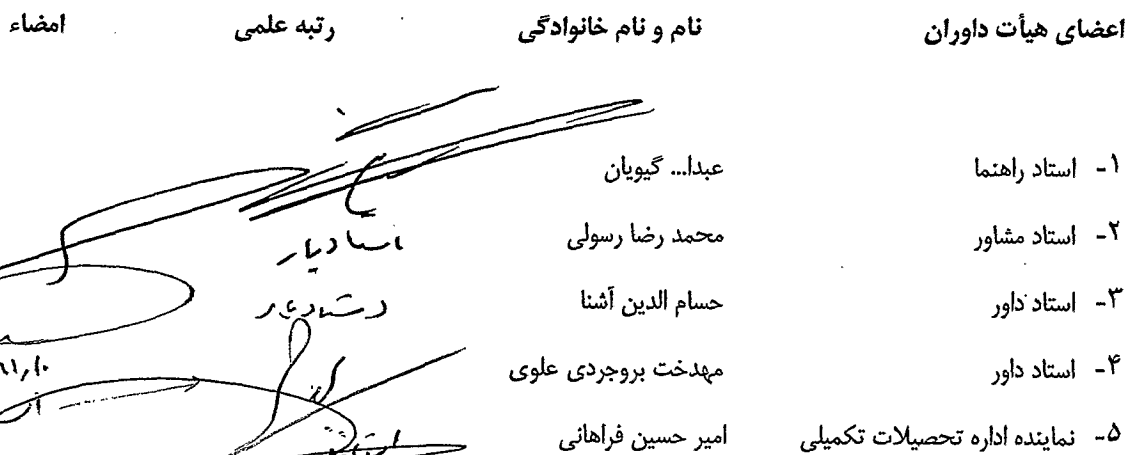 اعضای هیأت داوران نام و نام خانوادگی رتبه علمی امضاء
۱- استاد راهنما عبدا... گیویان
۲- استاد مشاور محمد رضا رسولی استادیار
۳- استاد داور حسام الدین آشنا
۴- استاد داور مهدخت بروجردی علوی
۵- نماینده اداره تحصیلات تکمیلی امیر حسین فراهانی